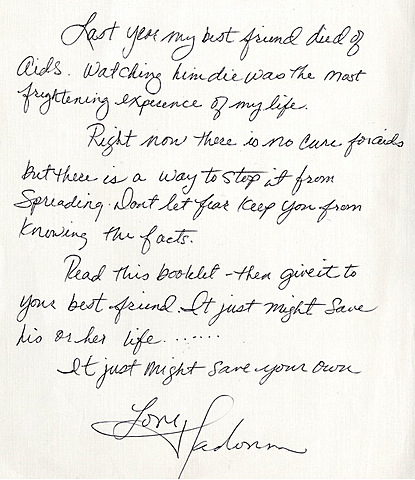 Last year my best friend died of
Aids. Watching him die was the most
frightening experience of my life.
Right now there is no cure for aids
but there is a way to stop it from
Spreading. Dont let fear keep you from
knowing the facts.
Read this booklet - then give it to
your best friend. It just might save
his or her life.......
It just might save your own
Love Madonna